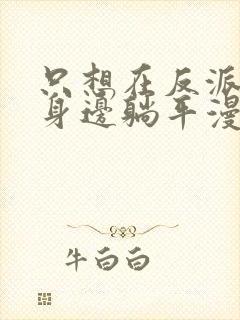 只想在反派
身邊躺平漫
牛白白